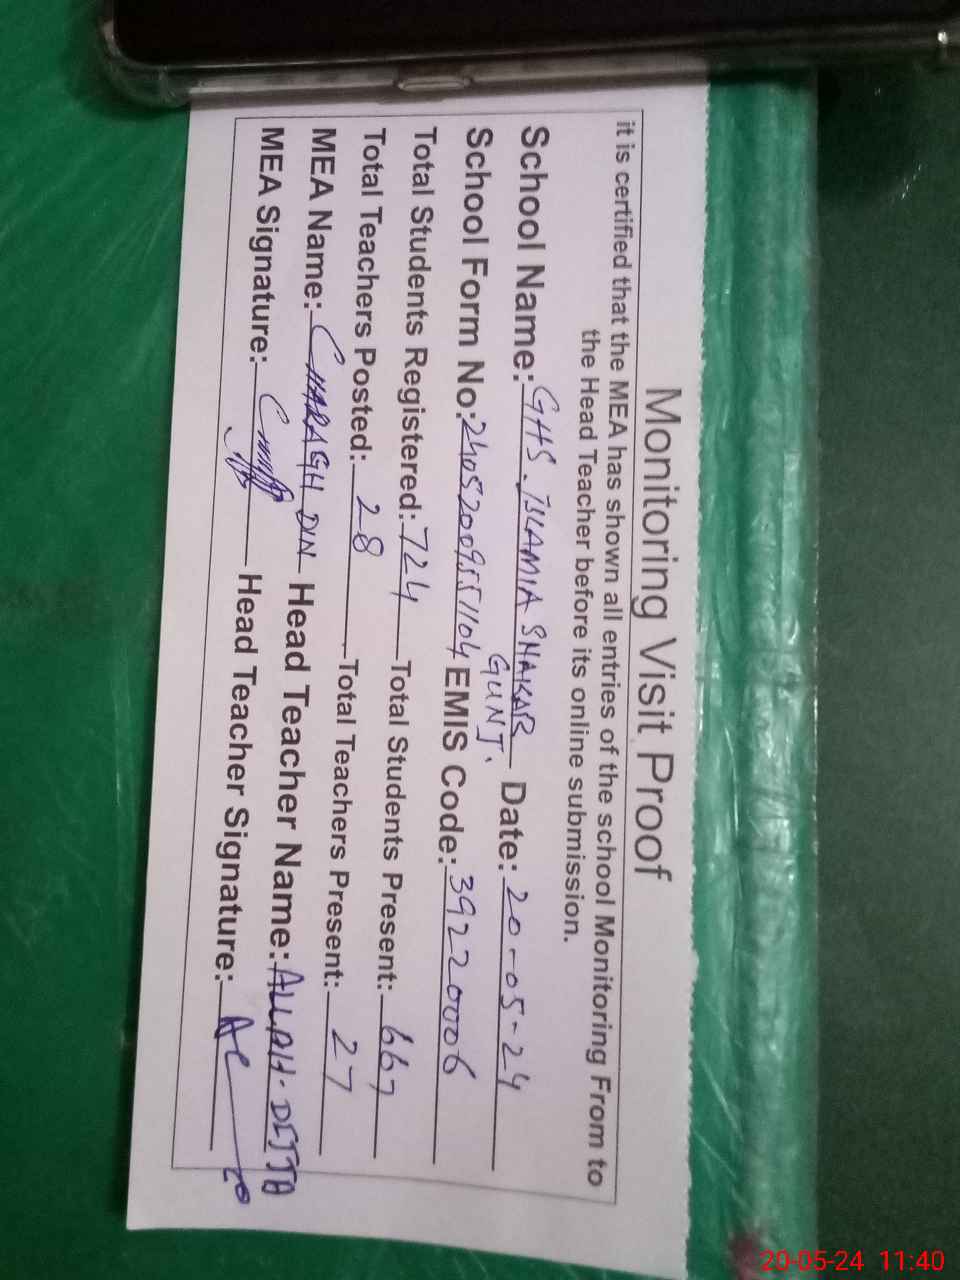 Monitoring Visit Proof
it is certified that the MEA has shown all entries of the school Monitoring From to
the Head Teacher before its online submission.
School Name: GHS. ISLAMIA SHAKAR GUNJ. Date: 20-05-24
School Form No: 24052009551104 EMIS Code: 39220006
Total Students Registered: 724 Total Students Present: 667
Total Teachers Posted: 28 Total Teachers Present: 27
MEA Name: CHARAGH DIN Head Teacher Name: ALLAH DITTA
MEA Signature: Head Teacher Signature:
20-05-24 11:40